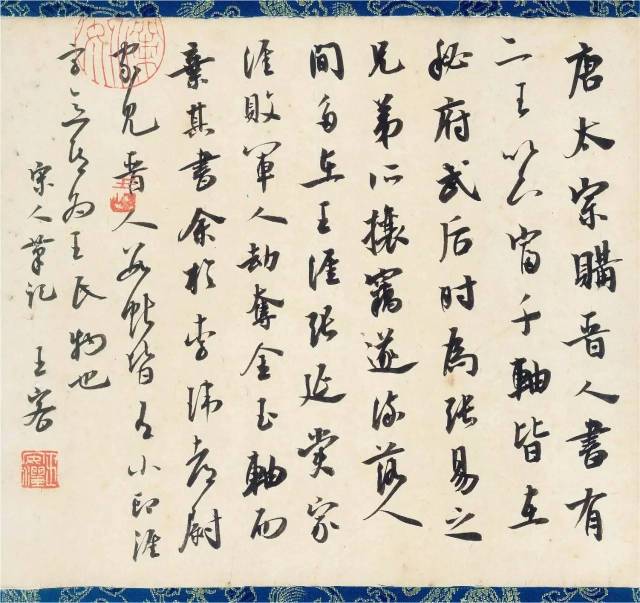 唐太宗購晉人書有
二王以下富千軸皆在
祕府武后時為張易之
兄弟所攘竊遂流落人
間多在王涯張延賞家
涯敗軍人劫奪金玉軸而
棄其書余於李瑋都尉
家見晉人數帖皆有小印涯
字意其為王氏物也
宋人筆記 王